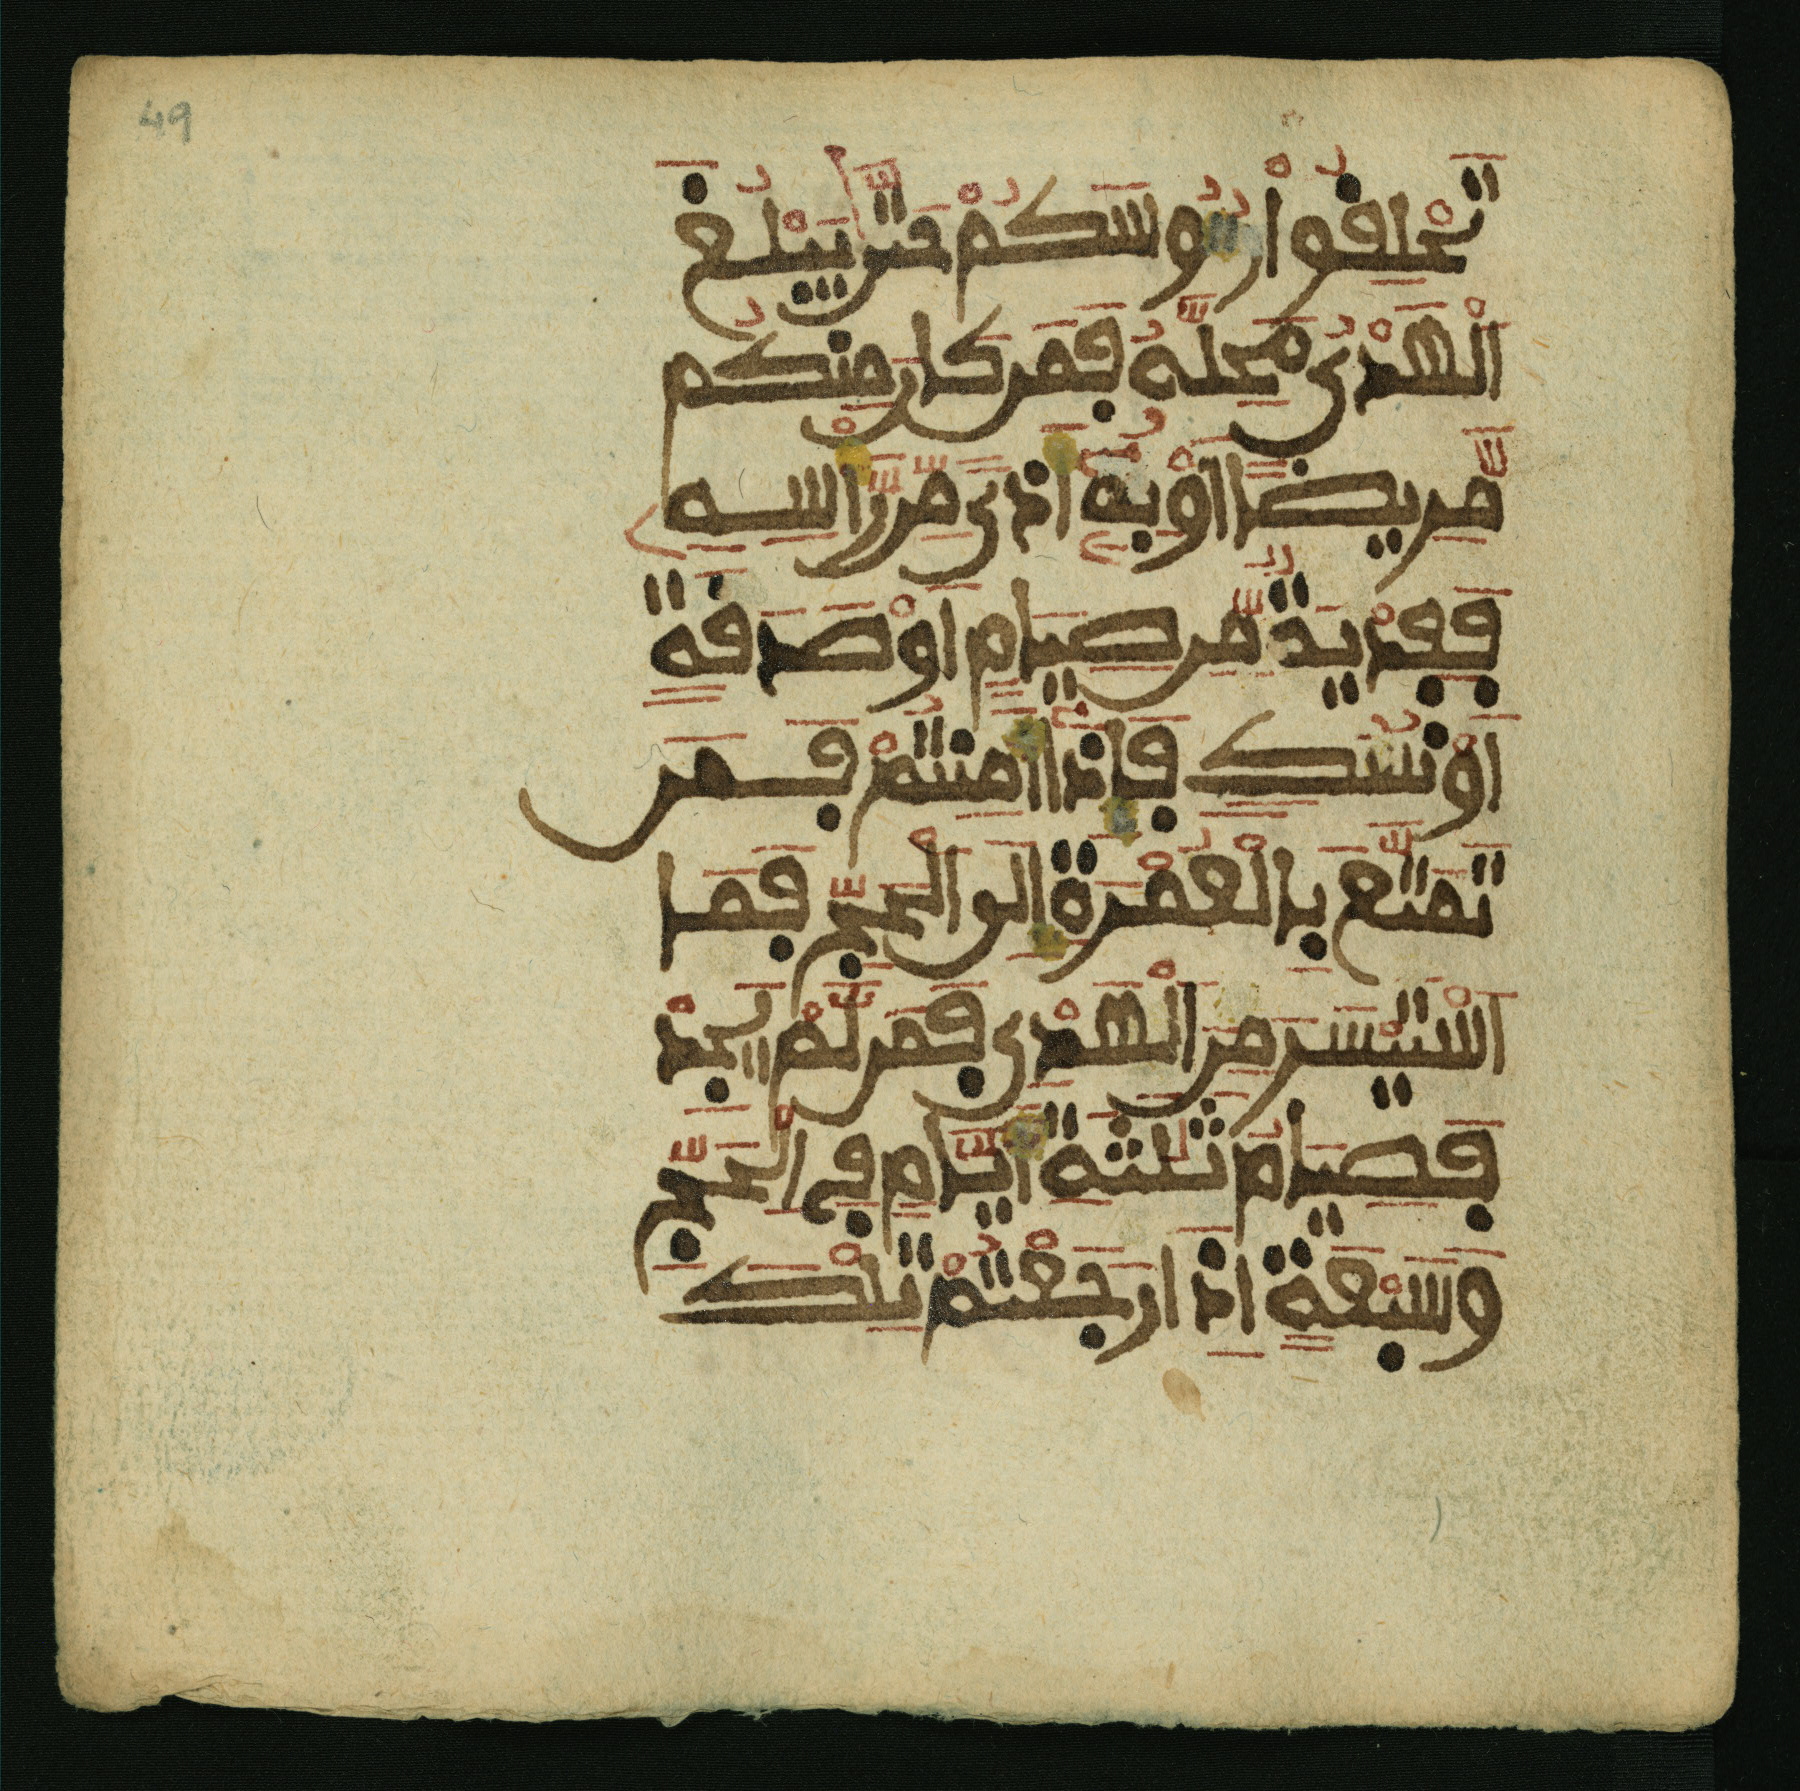 49
تَحْلِقُواْ رُءُوسَكُمْ حَتَّىٰ يَبْلُغَ
الْهَدْيُ مَحِلَّهُ فَمَن كَانَ مِنكُم
مَّرِيضًا اَوْ بِهِۦٓ أَذًى مِّن رَّاسِهِۦ
فَفِدْيَةٌ مِّن صِيَامٍ اَوْ صَدَقَةٍ
اَوْ نُسُكٍ فَإِذَآ أَمِنتُمْ فَمَن
تَمَتَّعَ بِالْعُمْرَةِ إِلَى الْحَجِّ فَمَا
اَسْتَيْسَرَ مِنَ الْهَدْيِ فَمَن لَّمْ يَجِدْ
فَصِيَامُ ثَلَٰثَةِ أَيَّامٍ فِي الْحَجِّ
وَسَبْعَةٍ إِذَا رَجَعْتُمْ تِلْكَ